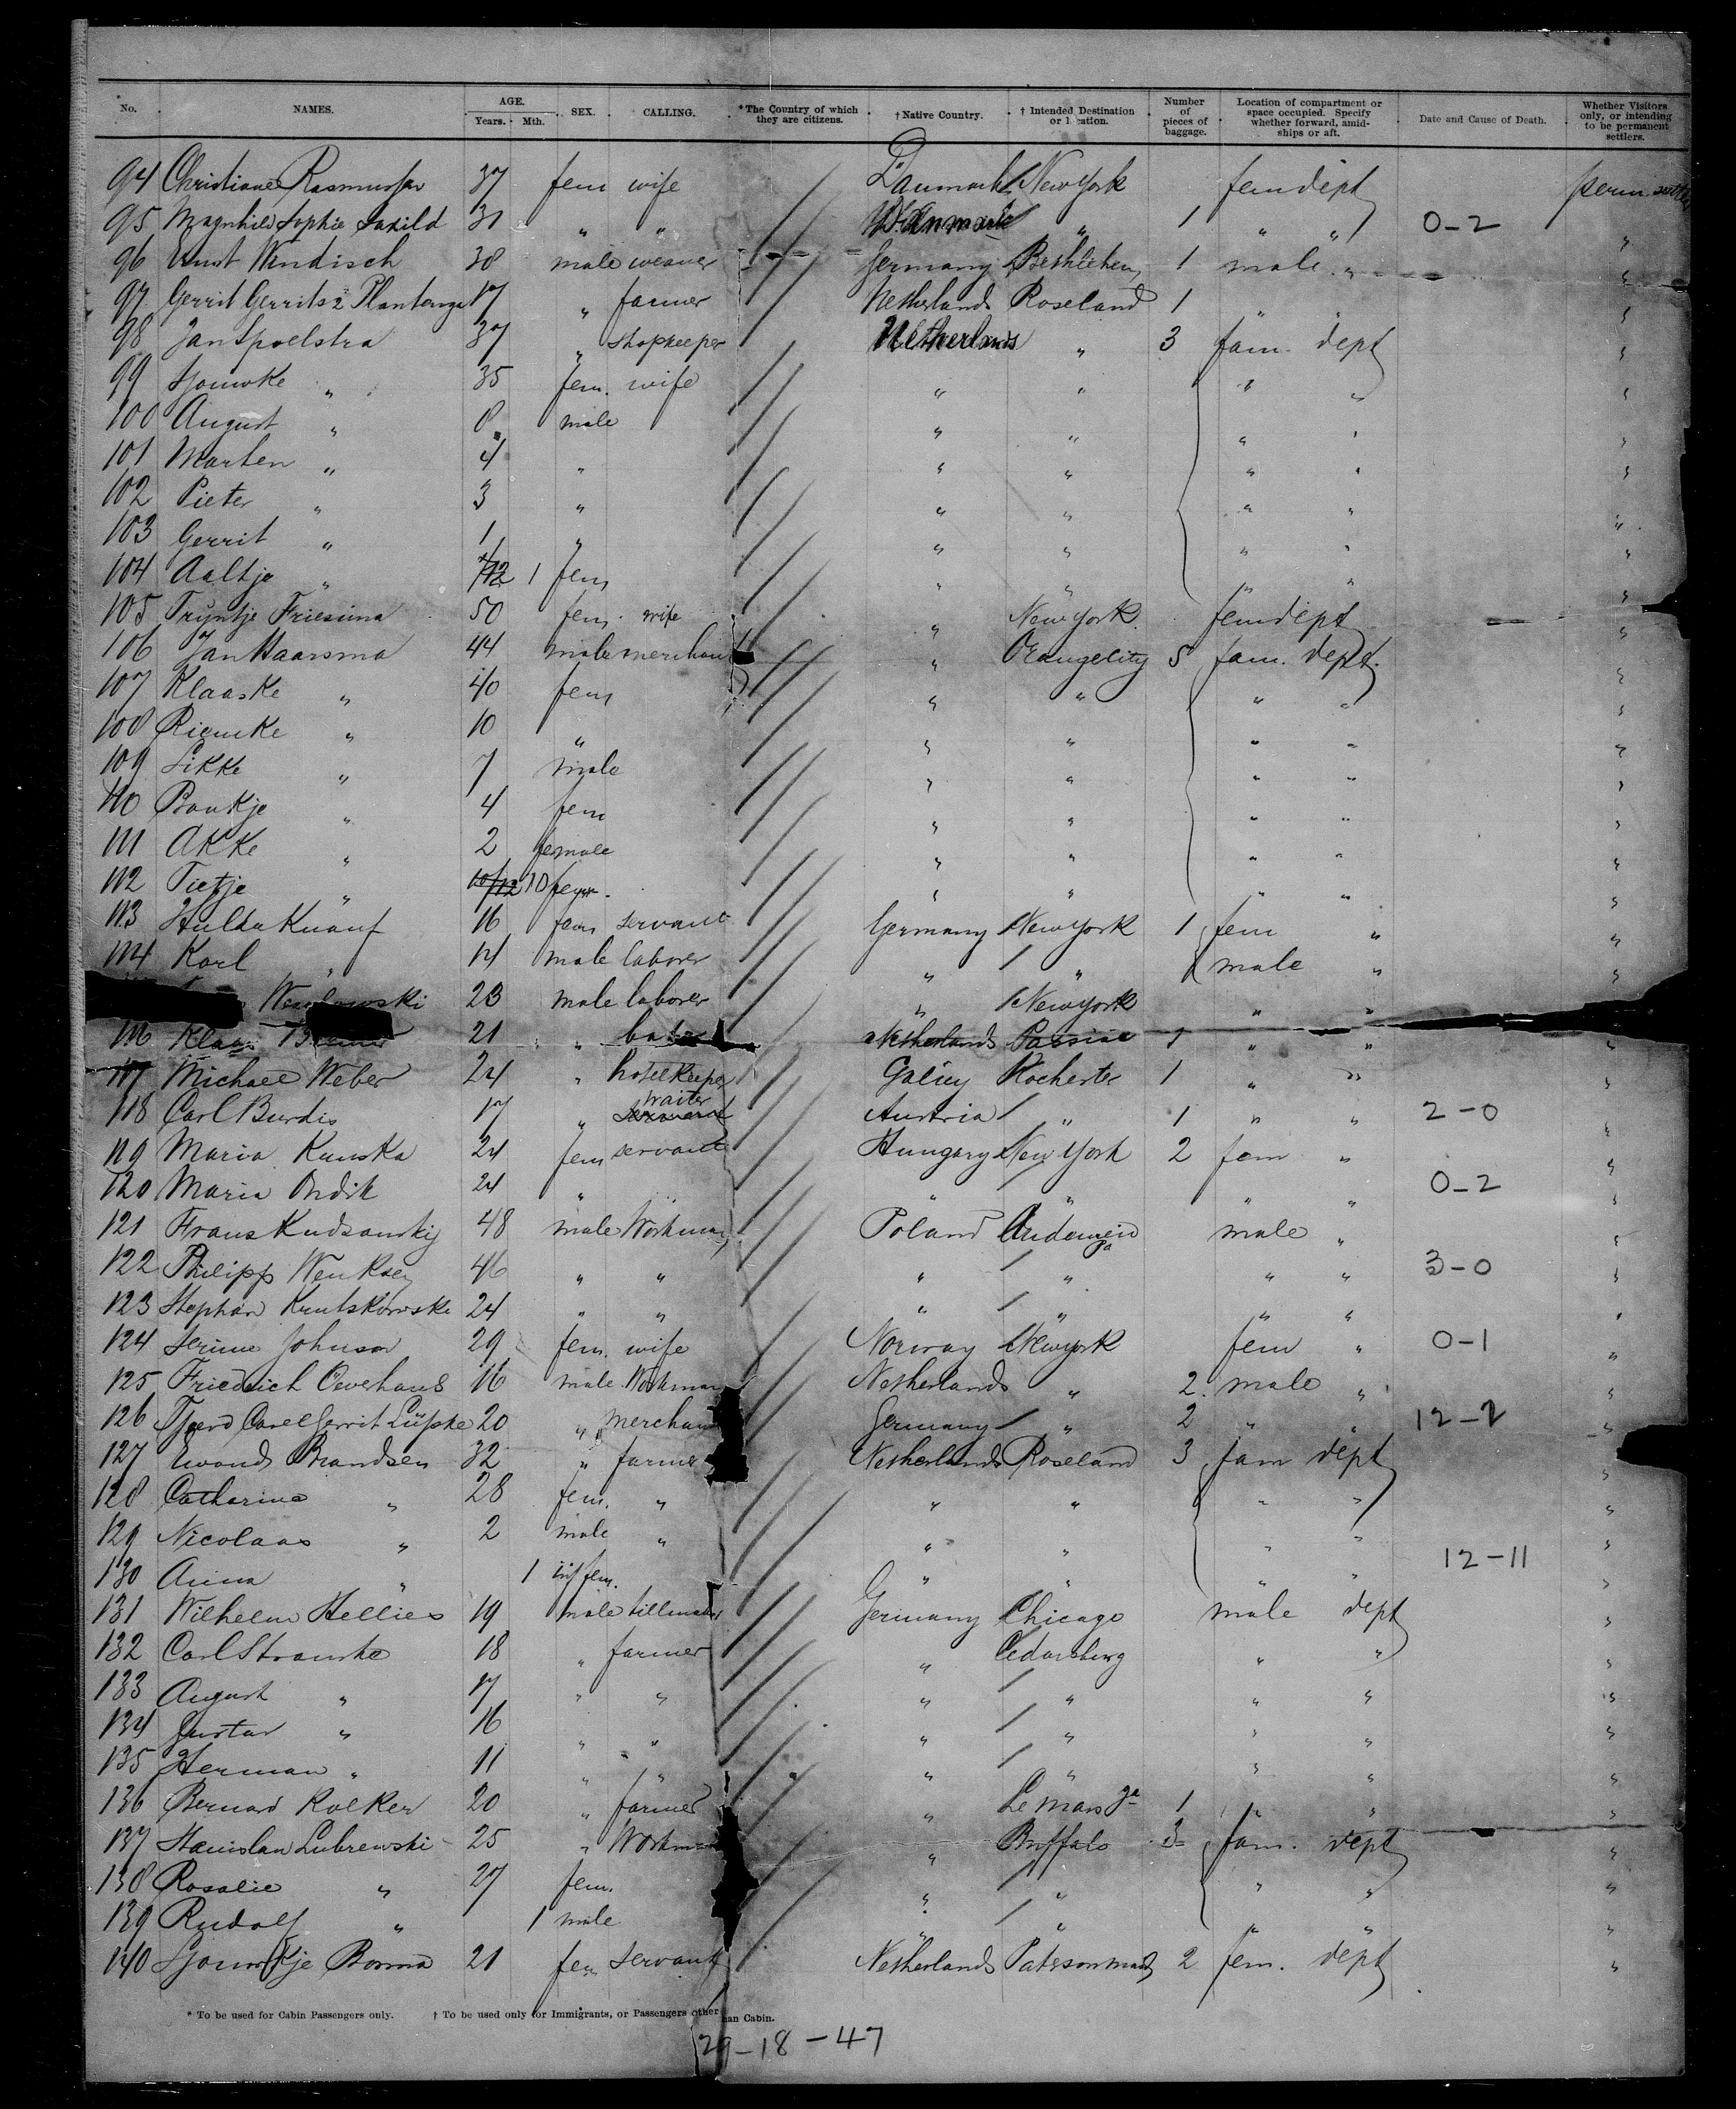 No. NAMES. AGE. Years. Mth. SEX. CALLING. *The Country of which they are citizens. †Native Country. †Intended Destination or location. Number of pieces of baggage. Location of compartment or space occupied. Specify whether forward, amid-ships or aft. Date and Cause of Death. Whether Visitors only, or intending to be permanent settlers.
94 Christiane Rasmussen 37 fem wife Danmark New York fem dept perm. settler
95 Magnhild Sophie Saxild 31 " " Danmark " 1 " " 0-2 "
96 Ernst Windisch 38 male weaver Germany Bethlehem 1 male " "
97 Gerrit Gerritsz Plantenga 17 " farmer Netherlands Roseland 1 " " "
98 Jan Spoelstra 37 " shopkeeper Netherlands " 3 fam. dept "
99 Sjouwke " 35 fem. wife " " " " "
100 August " 8 male " " " " "
101 Marten " 4 " " " " " "
102 Pieter " 3 " " " " " "
103 Gerrit " 1 " " " " " "
104 Aaltje " 1/12 1 fem " " " " "
105 Tryntje Friesima 50 fem. wife " New York. fem dept "
106 Jan Haarsma 44 male merchant " Orangecity 5 fam. dept. "
107 Klaaske " 40 fem " " " " "
108 Riemke " 10 " " " " " "
109 Sikke " 7 male " " " " "
110 Baukje " 4 fem " " " " "
111 Akke " 2 female " " " " "
112 Tietje " 10/12 10 fem. " " " " "
113 Hulda Knauf 16 fem servant Germany New York 1 fem " "
114 Karl " 14 male laborer " " male " "
23 male laborer " New York " " "
116 Klaas 21 " Netherlands Passaic 1 " " "
117 Michael Weber 24 " hotelkeeper Galicy Rochester 1 " " "
118 Carl Burdis 17 " servant waiter Austria " 1 " " 2-0 "
119 Maria Kunska 24 fem servant Hungary New York 2 fem " "
120 Maria Ondik 24 " " " " " " 0-2 "
121 Frans Kudsansky 48 male Workman Poland Pa male " "
122 Philipp 46 " " " " " " 3-0 "
123 Stephan 24 " " " " " " "
124 Serine Johnson 29 fem. wife Norway New York fem " 0-1 "
125 Friedrich Overhaus 16 male Workman Netherlands " 2. male " "
126 Tjeerd Carel Gerrit Lüpke 20 " merchant Germany " 2 " " 12-2 "
127 Ewoud Brandsen 32 " farmer Netherlands Roseland 3 fam dept "
128 Catharina " 28 fem. " " " " " "
129 Nicolaas " 2 male " " " " " "
130 Anna " 1 inf fem. " " " " 12-11 "
131 Wilhelm Hellies 19 male Germany Chicago male dept "
132 Carl Stramke 18 " farmer " Cedarsburg " " "
133 August " 17 " " " " " " "
134 Gustav " 16 " " " " " " "
135 Herman " 11 " " " " " " "
136 Bernard Kolker 20 " farmer " Le Mars Ja 1 " " "
137 Stanislau Lubrewski 25 " Workman " Buffalo 3 fam. dept "
138 Rosalie " 27 fem. " " " " "
139 Rudolf " 1 male " " " " "
140 Sjoukje Bosma 21 fem servant Netherlands 2 fem. dept "
* To be used for Cabin Passengers only. † To be used only for Immigrants, or Passengers other than Cabin.
29-18-47